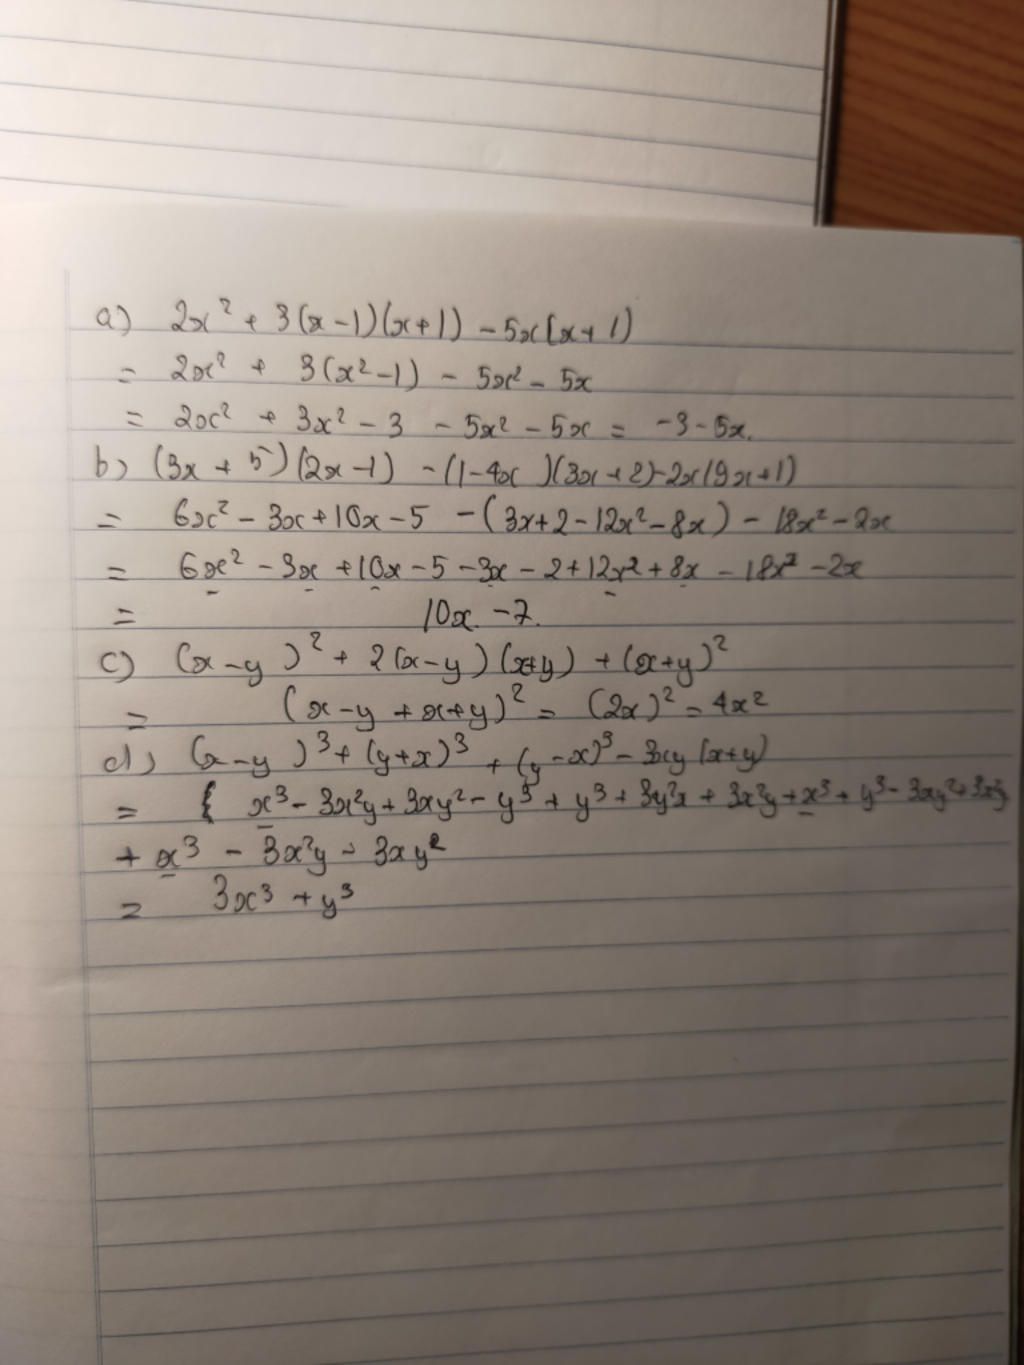 a) 2x² + 3(x-1)(x+1) - 5x(x+1)
= 2x² + 3(x²-1) - 5x² - 5x
= 2x² + 3x² - 3 - 5x² - 5x = -3-5x.
b) (3x + 5)(2x-1) - (1-4x)(3x+2)-2x(9x+1)
= 6x² - 3x + 10x - 5 - (3x+2-12x²-8x) - 18x² - 2x
= 6x² - 3x + 10x - 5 - 3x - 2 + 12x² + 8x - 18x² - 2x
= 10x - 7.
c) (x-y)² + 2(x-y)(x+y) + (x+y)²
= (x-y + x+y)² = (2x)² = 4x²
d) (x-y)³ + (y+x)³ + (y-x)³ - 3xy(x+y)
= x³ - 3x²y + 3xy² - y³ + y³ + 3y²x + 3x²y + x³ + y³ - 3xy² + 3x²y
+ x³ - 3x²y - 3xy²
= 3x³ + y³